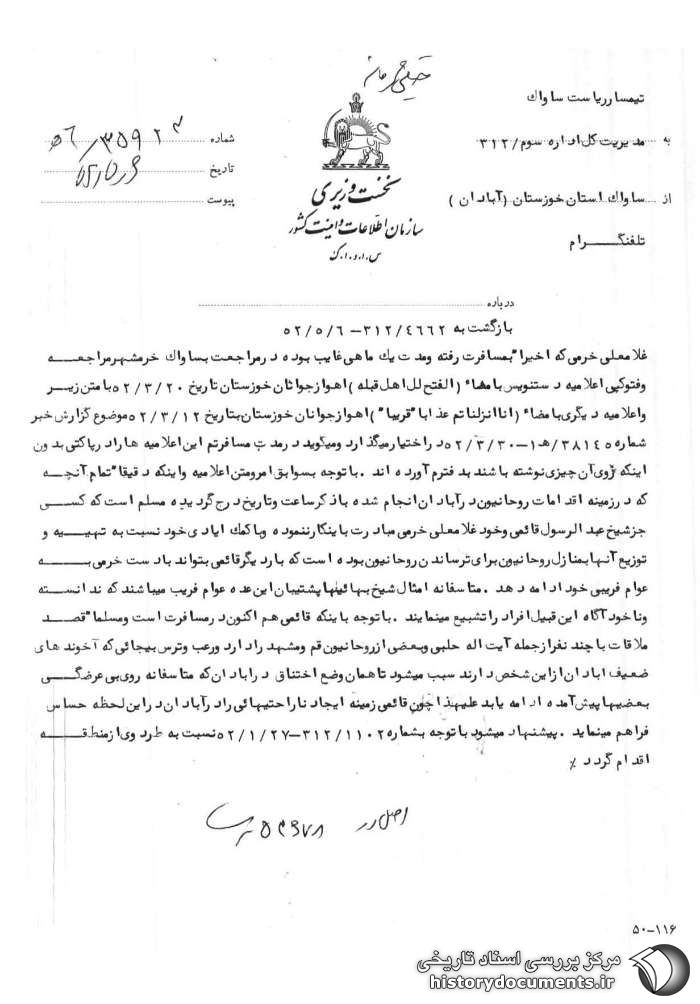 خیلی محرمانه
تیمسار ریاست ساواك
به مدیریت کل اداره سوم/۳۱۲
از ساواك استان خوزستان (آبادان)
تلفنگرام
نخست وزیری
سازمان اطلاعات و امنیت کشور
س.ا.و.ا.ک
شماره
تاریخ
پیوست
درباره
بازگشت به ۳۱۲/۴۶۶۲- ۵۲/۵/۶
غلامعلی خرمی که اخیرا" بمسافرت رفته و مدت یك ماهی غایب بوده در مراجعت بساواك خرمشهر مراجعه
و فتوکپی اعلامیه دستنویس بامضاء (الفتح لل اهل قبله) اهواز جوانان خوزستان تاریخ ۵۲/۳/۲۰ با متن زیر
و اعلامیه دیگری بامضاء (انا انزلنا تم عذابا" قریبا") اهواز جوانان خوزستان بتاریخ ۵۲/۳/۱۲ موضوع گزارش خبر
شماره ۳۸۱۴۵/هـ۱- ۵۲/۳/۳۰ در اختیار میگذارد و میگوید در مدت مسافرتم این اعلامیه ها را در پاکتی بدون
اینکه روی آن چیزی نوشته باشند بدفترم آورده اند . با توجه بسوابق امر و متن اعلامیه و اینکه دقیقا" تمام آنچه
که در زمینه اقدامات روحانیون در آبادان انجام شده با ذکر ساعت و تاریخ درج گردیده مسلم است که کسی
جز شیخ عبدالرسول قائمی و خود غلامعلی خرمی مبادرت باینکار ننموده و با کمك ایادی خود نسبت به تهیه و
توزیع آنها بمنازل روحانیون برای ترساندن روحانیون بوده است که بار دیگر قائمی بتواند بادست خرمی به
عوام فریبی خود ادامه دهد . متاسفانه امثال شیخ بهائیها پشتیبان این عده عوام فریب میباشند که ندانسته
و ناخودآگاه این قبیل افراد را تشبیع مینمایند . با توجه باینکه قائمی هم اکنون در مسافرت است و مسلما" قصد
ملاقات با چند نفر از جمله آیت اله حلبی و بعضی از روحانیون قم و مشهد را دارد و رعب و ترس بیجائی که آخوند های
ضعیف ابادان از این شخص دارند سبب میشود تا همان وضع اختناق در ابادان که متاسفانه روی بی عرضگی
بعضیها پیش آمده ادامه یابد علیهذا چون قائمی زمینه ایجاد ناراحتیهائی را در آبادان در این لحظه حساس
فراهم مینماید . پیشنهاد میشود با توجه بشماره ۳۱۲/۱۱۰۲- ۵۲/۱/۲۷ نسبت به طرد وی از منطقه
اقدام گردد ٪
اصل در
۵۰-۱۱۶
مرکز بررسی اسناد تاریخی
historydocuments.ir